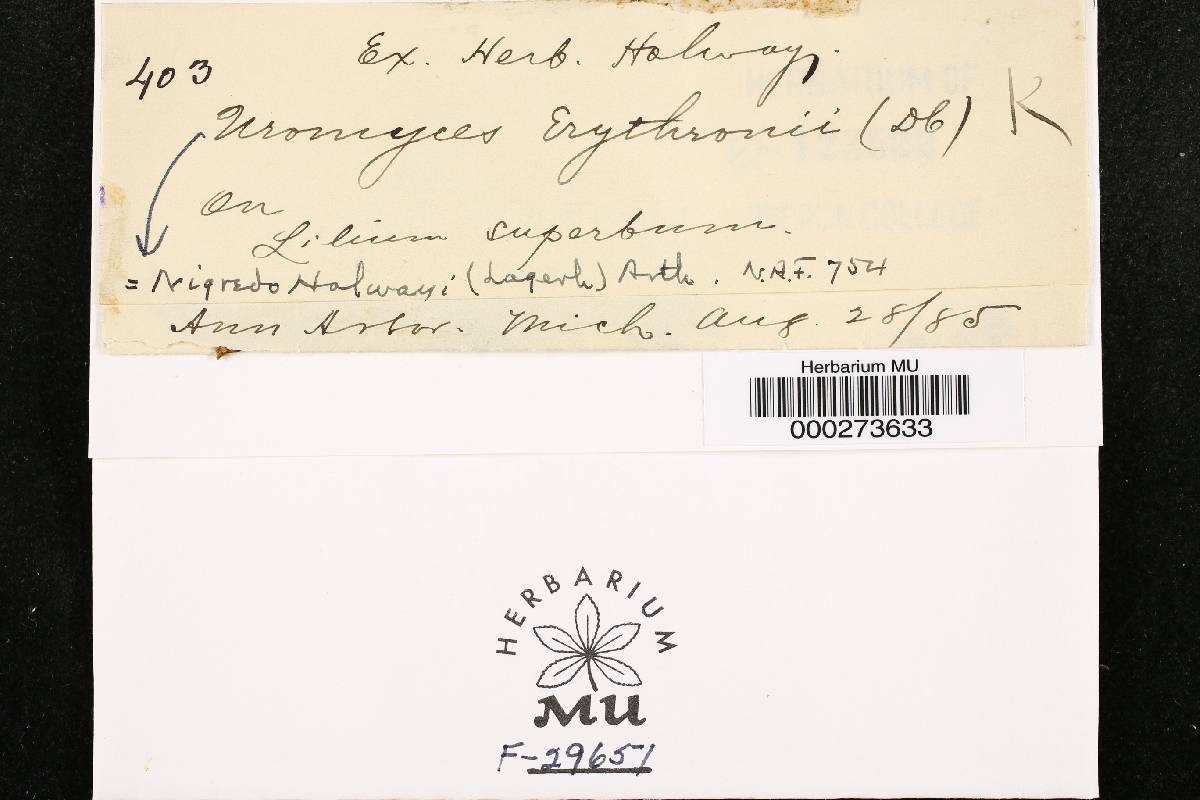 Ex. Herb. Holway.
403
Uromyces Erythronii (DC) K
On
Lilium superbum.
= Nigredo Holwayi (Lagerh.) Arth. N.A.F. 754
Ann Arbor. Mich. Aug. 28/85
Herbarium MU
000273633
HERBARIUM
MU
F-29651